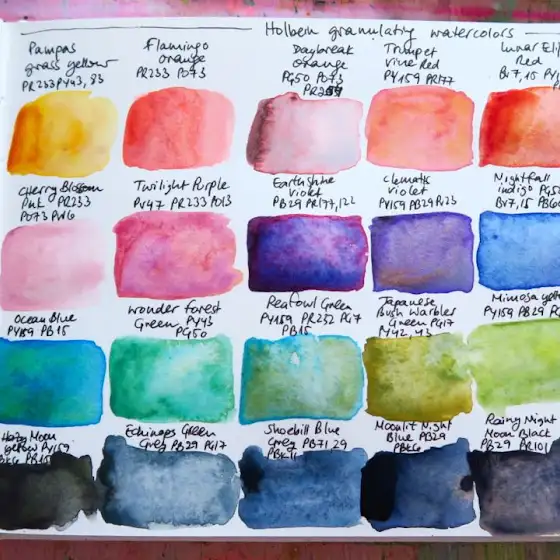 Holbein granulating watercolors
Pampas
grass yellow
PR233 PY43, 83
Flamingo
orange
PR233 PO73
Daybreak
orange
PG50 PO73
Trumpet
vine Red
PY159 PR177
Lunar Ecli
Red
Br7, 15
Cherry Blossom
Pink PR233
PO73 PV16
Twilight Purple
PV47 PR233 PO13
Earthshine
violet
PB29 PR177, 122
Clematis
violet
PY159 PB29 PV23
Nightfall
indigo PG50
BV7, 15 PB60
Ocean Blue
PY159 PB15
wonder forest
Green PY43
PG50
Peafowl Green
PY159 PR252 PG17
PB15
Japanese
Bush Warbler
Green PG17
PY42, 43
Mimosa yello
PY159 PB29
Hazy Moon
yellow PY159
Echinops Green
Grey PB29 PG17
Shoebill Blue
Grey PB71, 29
Moonlit Night
Blue PB29
PBk6
Rainy Night
Moon Black
PB29 PR101